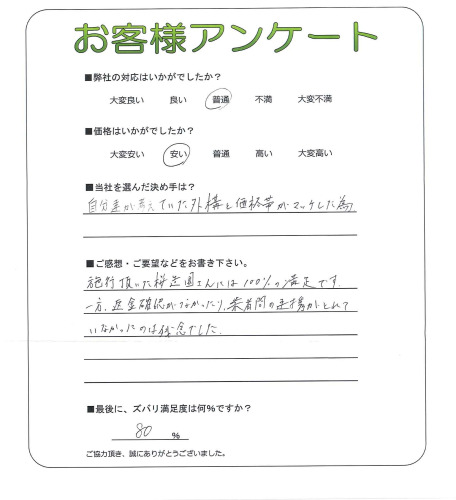 お客様アンケート
■弊社の対応はいかがでしたか？
大変良い 良い 普通 不満 大変不満
■価格はいかがでしたか？
大変安い 安い 普通 高い 大変高い
■当社を選んだ決め手は？
自分達が考えていた外構と価格帯がマッチした為
■ご感想・ご要望などをお書き下さい。
施行頂いた 園さんには100%の満足です。
一方、 金確認がなかったり、業者間の連携がとれて
いなかったのは残念でした。
■最後に、ズバリ満足度は何％ですか？
80 ％
ご協力頂き、誠にありがとうございました。